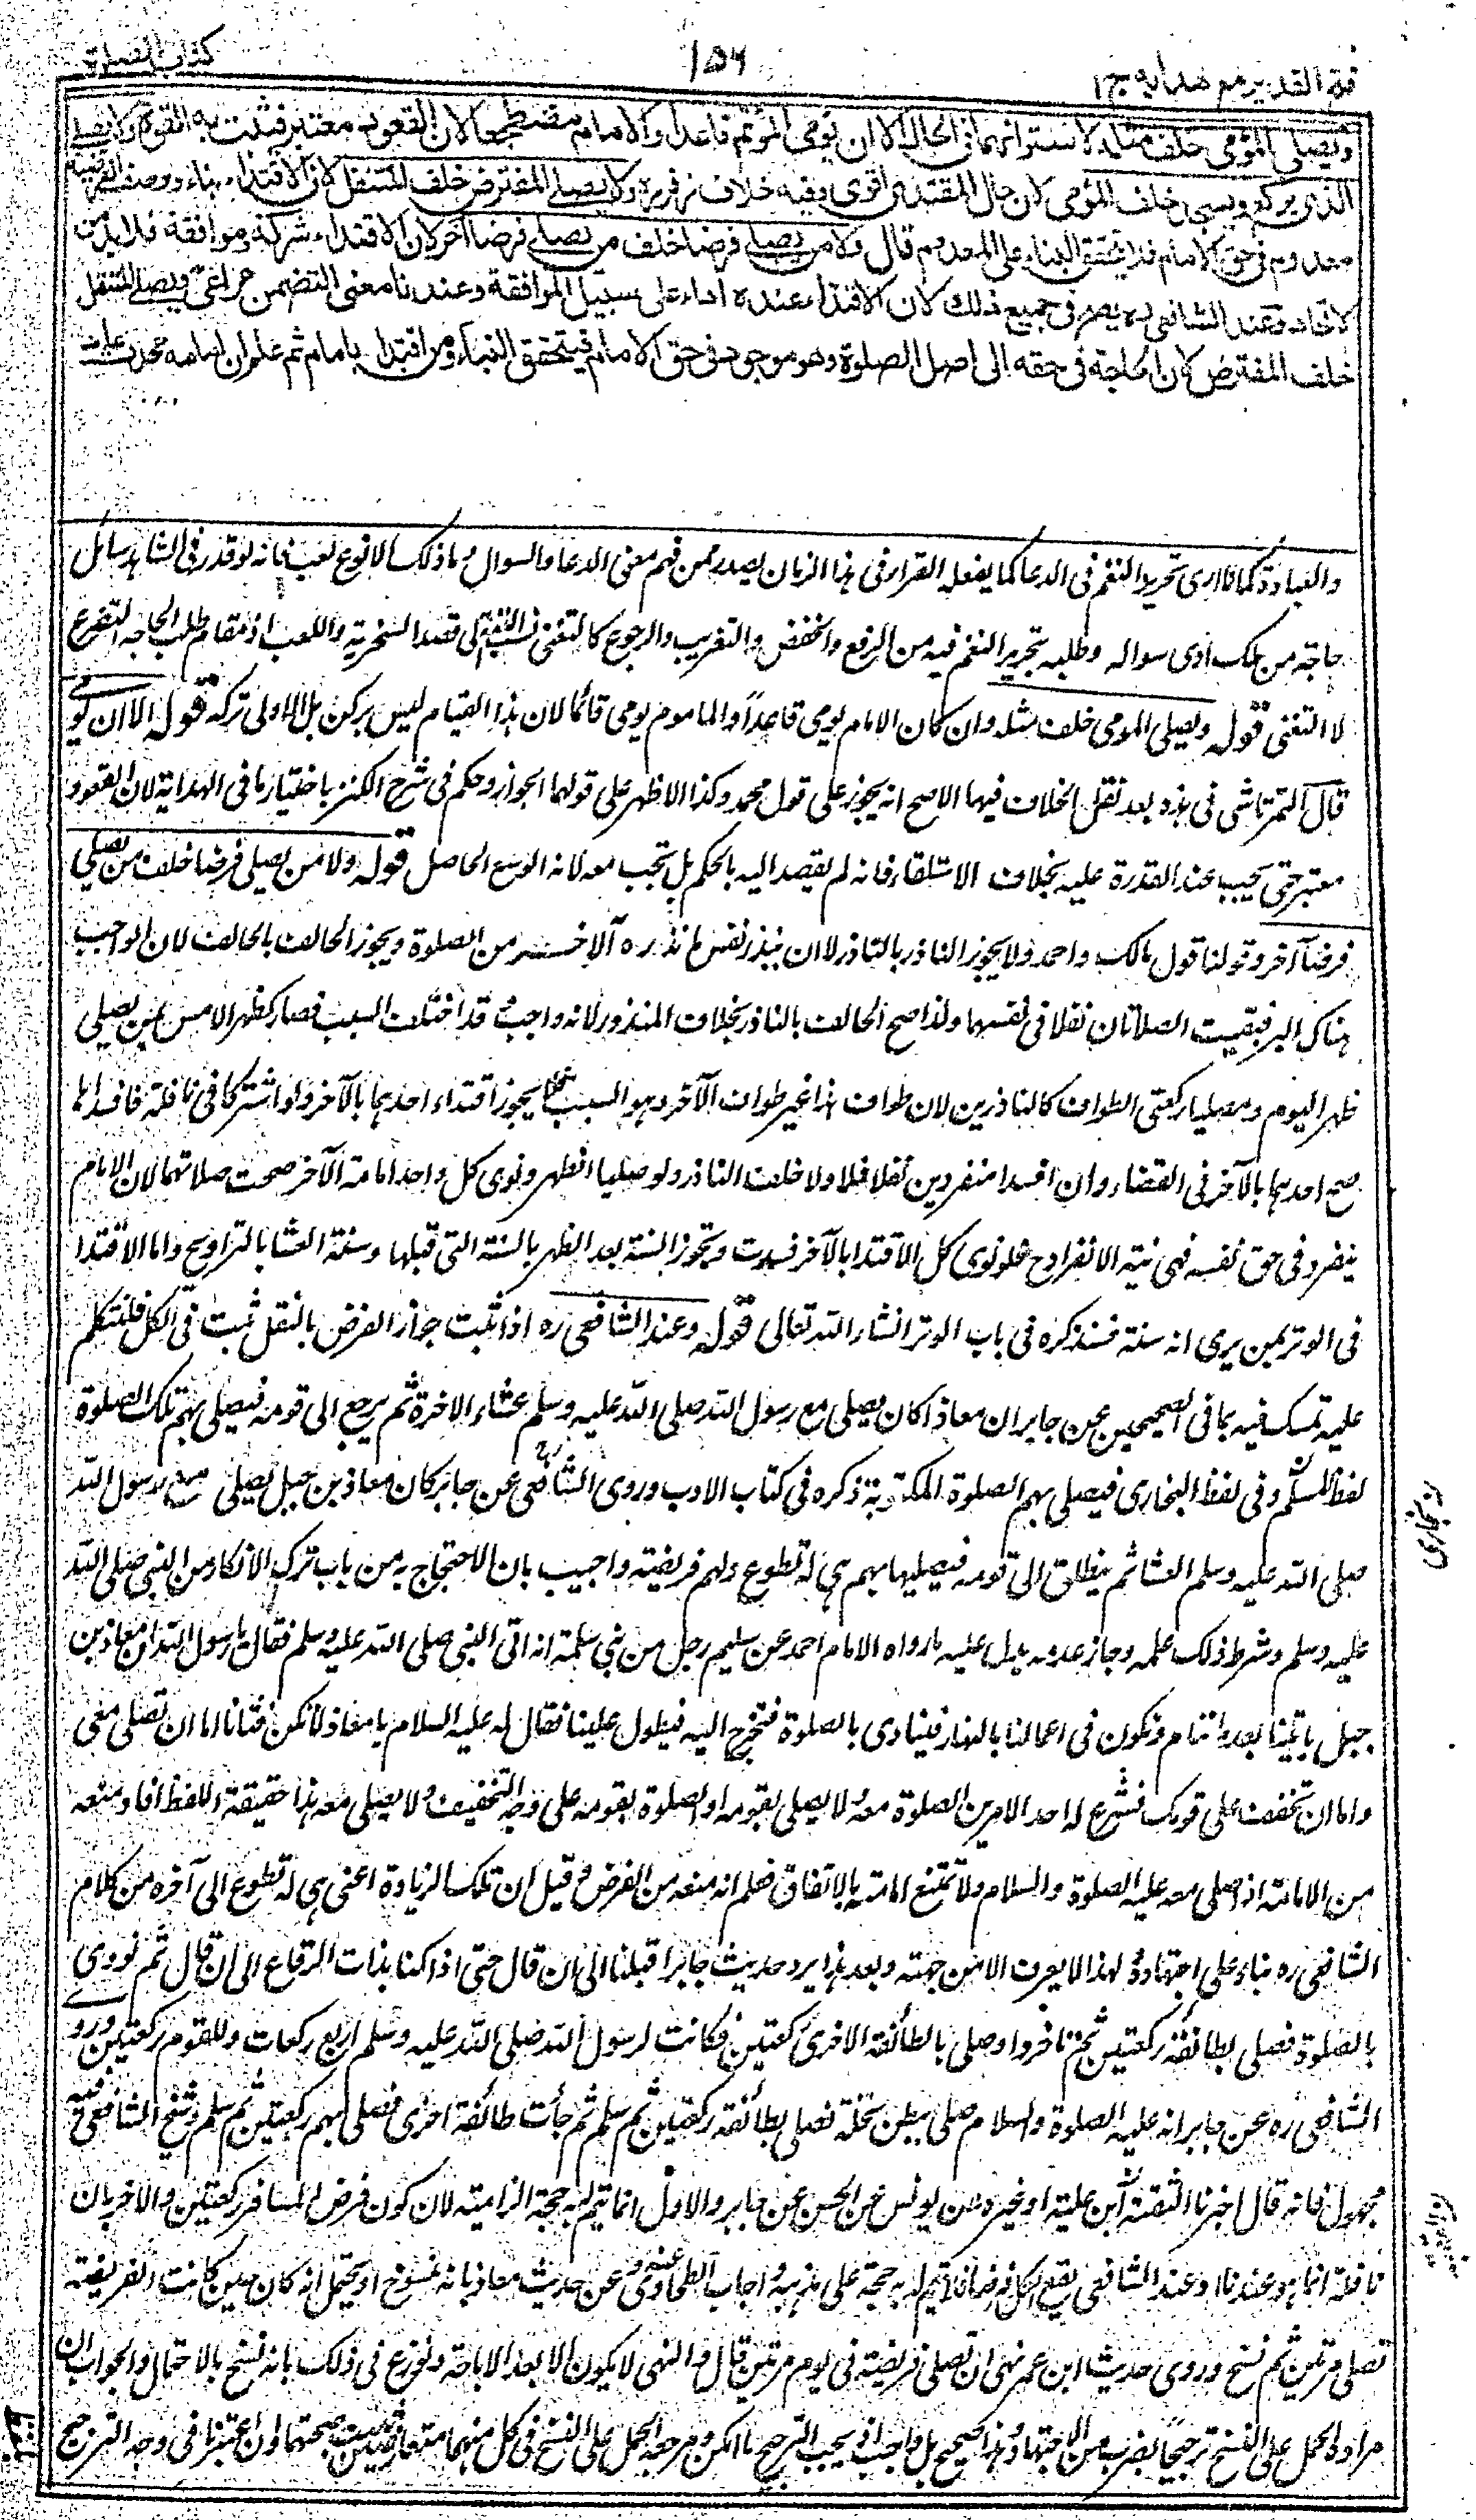 فتح القدير مع هدايه ج١
١٥٦
كتاب الصلوة
ويصلى المؤمى خلف مثله لاستوائهما فى الحال الا ان يومى المؤتم قاعدا والامام مضطجعا لان القعود معتبر فيثبت به القوة ولا يصلى
الذى يركع ويسجد خلف المؤمى لان حال المقتدى اقوى وفيه خلاف زفر ره ولا يصلى المفترض خلف المتنفل لان الاقتداء بناء ووصف الفرضية
معدوم فى حق الامام فلا يتحقق البناء على المعدوم قال ولا من يصلى فرضا خلف من يصلى فرضا آخر لان الاقتداء شركة وموافقة فلا بد من
الاتحاد وعند الشافعى ره يصح فى جميع ذلك لان الاقتداء عنده اداء على سبيل الموافقة وعندنا معنى التضمن مراعى ويصلى المتنفل
خلف المفترض لان الحاجة فى حقه الى اصل الصلوة وهو موجود فى حق الامام فيتحقق البناء ومن اقتدى بامام ثم علم ان امامه محدث اعاد
والعبادة كما ارى تحرير النغم فى الدعا كما يفعله القراء فى هذا الزمان يصدر ممن فهم معنى الدعا والسوال وما ذلك الا نوع لعب فانه لو قدر فى الشاهد سائل
حاجة من ملك ادى سواله وطلبه تحرير النغم فيه من الرفع والخفض والتغريب والرجوع كالتغنى نسب البتة الى قصد السخرية واللعب اذ مقام طلب الحاجة التضرع
لا التغنى قوله ويصلى المومى خلف مثله وان كان الامام يومى قاعدا والماموم يومى قائما لان هذا القيام ليس بركن بل الاولى تركه قوله الا ان يومى
قال التمرتاشى فى هذه بعد نقل الخلاف فيها الاصح انه يجوز على قول محمد وكذا الاظهر على قولهما الجواز وحكم فى شرح الكنز باختيار ما فى الهداية لان القعود
معتبر حتى يجب عند القدرة عليه بخلاف الاستلقاء فانه لم يقصد اليه بالحكم بل تجب معه لانه الوسع الحاصل قوله ولا من يصلى فرضا خلف من يصلى
فرضا آخر وقولنا قول مالك واحمد ولا يجوز الناذر بالناذر الا ان ينذر نفس ما نذره الآخر من الصلوة ويجوز الحالف بالحالف لان الواجب
هناك البر فبقيت الصلاتان نفلا فى نفسهما ولذا صح الحالف بالناذر بخلاف المنذور لانه واجب وقد اختلف السبب فصار كظهر الامس بمن يصلى
ظهر اليوم ومصليا ركعتى الطواف كالناذرين لان طواف هذا غير طواف الآخر وهو السبب فلا يجوز اقتداء احدهما بالآخر ولو اشتركا فى نافلة فافسداها
صح احدهما بالآخر فى القضاء وان افسدا منفردين نفلا فلا ولا خلف الناذر ولو صليا الظهر ونوى كل واحد امامة الآخر صحت صلاتهما لان الامام
ينفرد فى حق نفسه فهى نية الانفراد ح فلو نوى كل الاقتدا بالآخر فسدت وتجوز السنة بعد الظهر بالسنة التى قبلها وسنة العشا بالتراويح واما الاقتدا
فى الوتر بمن يرى انه سنة فسنذكره فى باب الوتر انشاء الله تعالى قوله وعند الشافعى ره اذا ثبت جواز الفرض بالنفل ثبت فى الكل فلنتكلم
عليه تمسك فيه بما فى الصحيحين عن جابر ان معاذا كان يصلى مع رسول الله صلى الله عليه وسلم عشاء الاخرة ثم يرجع الى قومه فيصلى بهم تلك الصلوة
لفظ لمسلم وفى لفظ البخارى فيصلى بهم الصلوة المكتوبة ذكره فى كتاب الادب وروى الشافعى عن جابر كان معاذ بن جبل يصلى مع رسول الله
صلى الله عليه وسلم العشا ثم ينطلق الى قومه فيصليها بهم هى له تطوع ولهم فريضة واجيب بان الاحتجاج به من باب ترك الانكار من النبى صلى الله
عليه وسلم وشرط ذلك علمه وجاز عدمه يدل عليه ما رواه الامام احمد عن سليم رجل من بنى سلمة انه اتى النبى صلى الله عليه وسلم فقال يا رسول الله ان معاذ بن
جبل ياتينا بعد ما ننام ونكون فى اعمالنا بالنهار فينادى بالصلوة فنخرج اليه فيطول علينا فقال له عليه السلام يا معاذ لا تكن فتانا اما ان تصلى معى
واما ان تخفف على قومك فشرع له احد الامرين الصلوة معه ولا يصلى بقومه او الصلوة بقومه على وجه التخفيف ولا يصلى معه هذا حقيقة اللفظ افاد منعه
من الامامة اذا صلى معه عليه الصلوة والسلام ولا تمتنع امامته بالاتفاق فعلم انه منعه من الفرض وقيل ان تلك الزيادة اعنى هى له تطوع الى آخره من كلام
الشافعى ره بناء على اجتهاده ولهذا لا يعرف الا من جهته وبعد هذا يرد حديث جابر اقبلنا الى ان قال حتى اذا كنا بذات الرقاع الى ان قال ثم نودى
بالصلوة فصلى بطائفة ركعتين ثم تاخروا وصلى بالطائفة الاخرى ركعتين فكانت لرسول الله صلى الله عليه وسلم اربع ركعات وللقوم ركعتين وروى
الشافعى ره عن جابر انه عليه الصلوة والسلام صلى ببطن نخلة فصلى بطائفة ركعتين ثم سلم ثم جأت طائفة اخرى فصلى بهم ركعتين ثم سلم وشيخ الشافعى فيه
مجهول فانه قال اخبرنا الثقة ابن علية او غيره عن يونس عن الحسن عن جابر والاول انما يتم له به حجة الزامية لان كون فرض المسافر ركعتين والاخريان
نافلة انما هو عندنا وعند الشافعى يقع الكل فرضا فلا يتم له به حجة على مذهبه واجاب الطحاوى عنه وعن حديث معاذ بانه منسوخ او يحتمل انه كان حين كانت الفريضة
تصلى مرتين ثم نسخ وروى حديث ابن عمر نهى ان تصلى فريضة فى يوم مرتين قال والنهى لا يكون الا بعد الاباحة ونوزع فى ذلك بانه نسخ بالاحتمال والجواب ان
مراده الحمل على النسخ ترجيحا بضرب من الاجتهاد وهذا صحيح بل واجب اذ يجب الترجيح ما امكن ومرجعه الحمل على النسخ فى كل متعارضين ثبتت صحتهما وان اعتبرنا فى وجه الترجيح